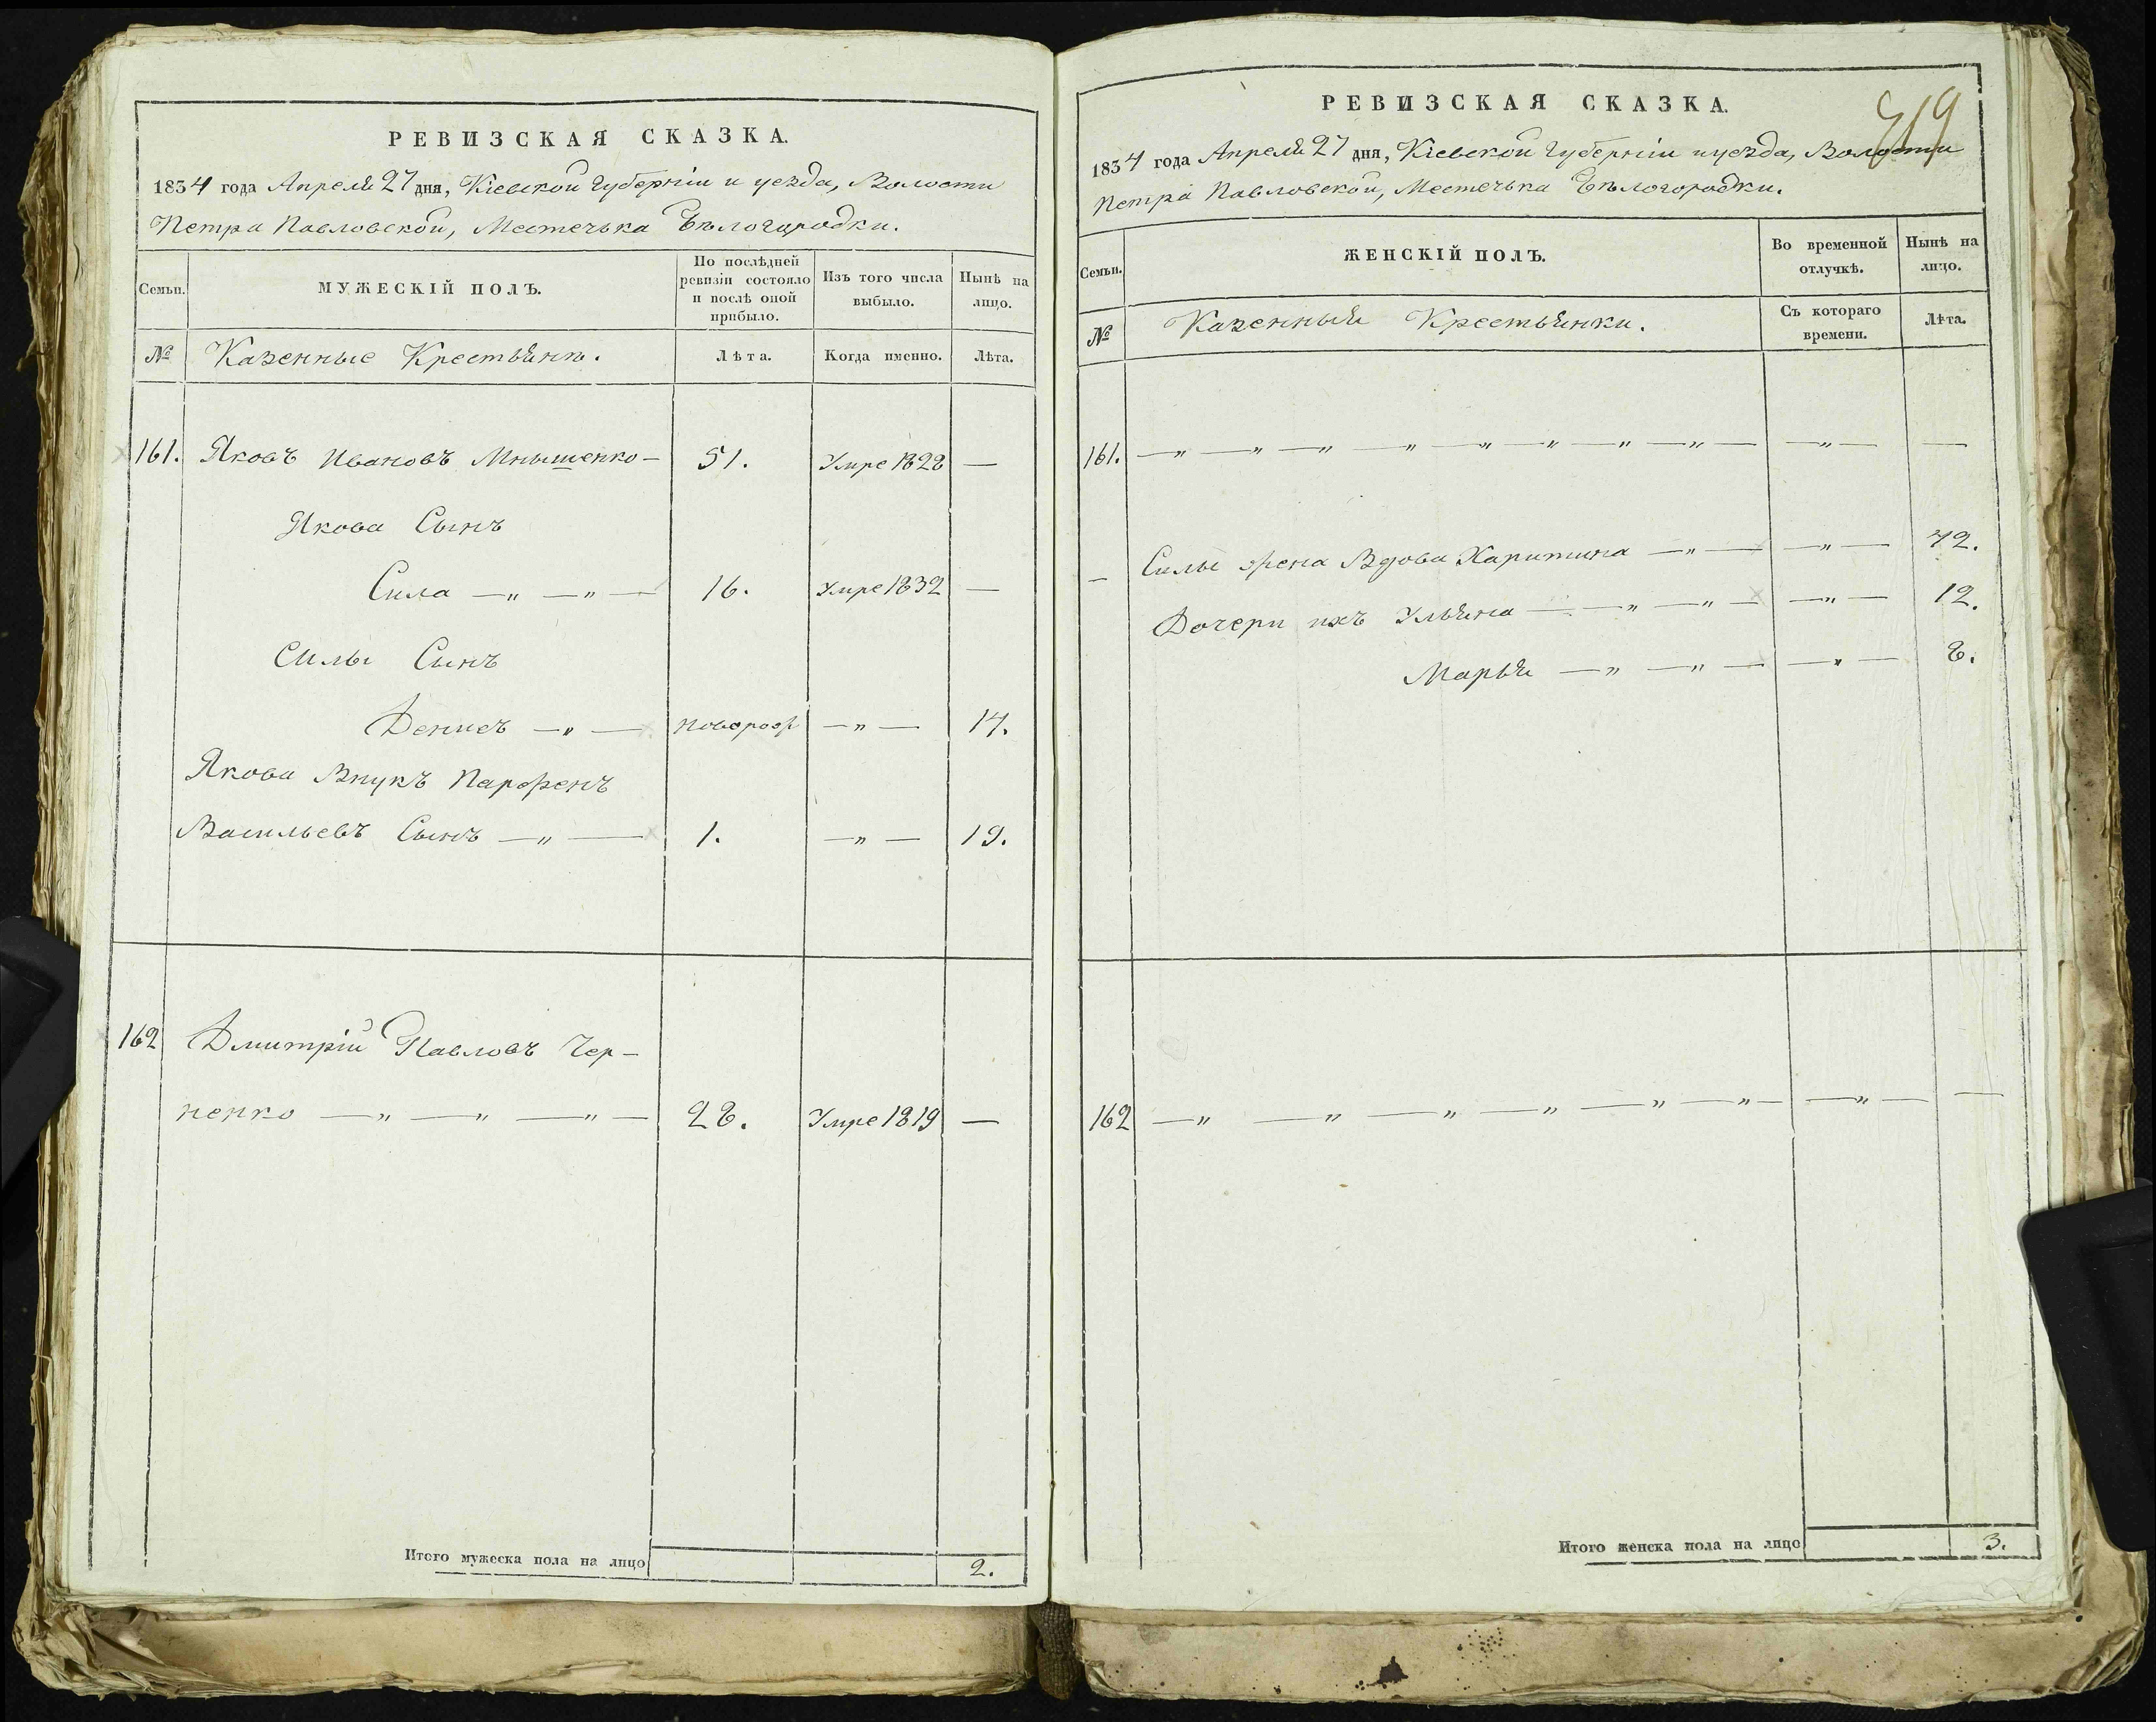 РЕВИЗСКАЯ СКАЗКА.
1834 года Апреля 27 дня, Кіевской Губерніи и уезда, Волости
Петра Павловской, Местечька Бѣлогородки.
Семьи.
МУЖЕСКІЙ ПОЛЪ.
По послѣдней ревизіи состояло и послѣ оной прибыло.
Изъ того числа выбыло.
Нынѣ на лицо.
№
Казенные Крестьяне.
Лѣта.
Когда именно.
Лѣта.
161. Яковъ Ивановъ Мнышенко— 51. Умре 1828 —
Якова Сынъ
Сила —„ —„ — 16. Умре 1832 —
Силы Сынъ
Денисъ —„ — новорож —„— 14.
Якова Внукъ Парфенъ
Васильевъ Сынъ —„ — 1. —„— 19.
162 Дмитрій Павловъ Чер-
ненко —„ —„ —„ — 28. Умре 1819 —
Итого мужеска пола на лицо 2.
РЕВИЗСКАЯ СКАЗКА.
319
1834 года Апреля 27 дня, Кіевской Губерніи и уезда, Волости
Петра Павловской, Местечька Бѣлогородки.
Семьи.
ЖЕНСКІЙ ПОЛЪ.
Во временной отлучкѣ.
Нынѣ на лицо.
№
Казенныя Крестьянки.
Съ котораго времени.
Лѣта.
161. —„ —„ —„ —„ —„ —„ —„ —„ — —„— —
— Силы жена Вдова Харитина —„— —„— 42.
Дочери ихъ Ульяна — —„ —„ — —„— 12.
Марья —„ —„ — —„— 8.
162 —„ —„ —„ —„ —„ —„— —„— —
Итого женска пола на лицо 3.